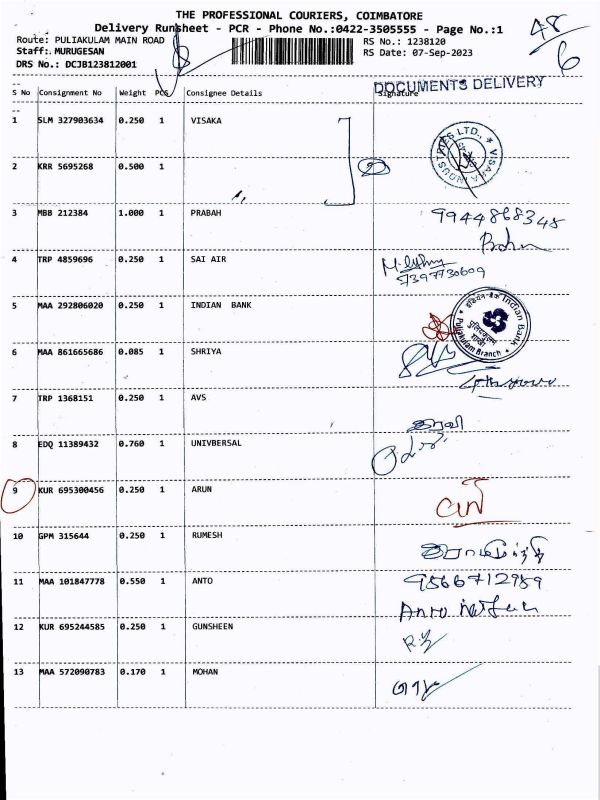 THE PROFESSIONAL COURIERS, COIMBATORE
Delivery Runsheet - PCR - Phone No.:0422-3505555 - Page No.:1
Route: PULIAKULAM MAIN ROAD
RS No.: 1238120
Staff: MURUGESAN
RS Date: 07-Sep-2023
DRS No.: DCJB123812001
48/6
DOCUMENTS DELIVERY
S No Consignment No Weight PCS Consignee Details Signature
1 SLM 327903634 0.250 1 VISAKA
VISAKA INDUSTRIES LTD.,
2 KRR 5695268 0.500 1
3 MBB 212384 1.000 1 PRABAH
9944868348
4 TRP 4859696 0.250 1 SAI AIR
7397730609
5 MAA 292806020 0.250 1 INDIAN BANK
इंडियन बैंक Indian Bank
Puliakulam Branch
6 MAA 861665686 0.085 1 SHRIYA
7 TRP 1368151 0.250 1 AVS
8 EDQ 11389432 0.760 1 UNIVBERSAL
9 KUR 695300456 0.250 1 ARUN
10 GPM 315644 0.250 1 RUMESH
11 MAA 101847778 0.550 1 ANTO
9566712989
12 KUR 695244585 0.250 1 GUNSHEEN
13 MAA 572090783 0.170 1 MOHAN